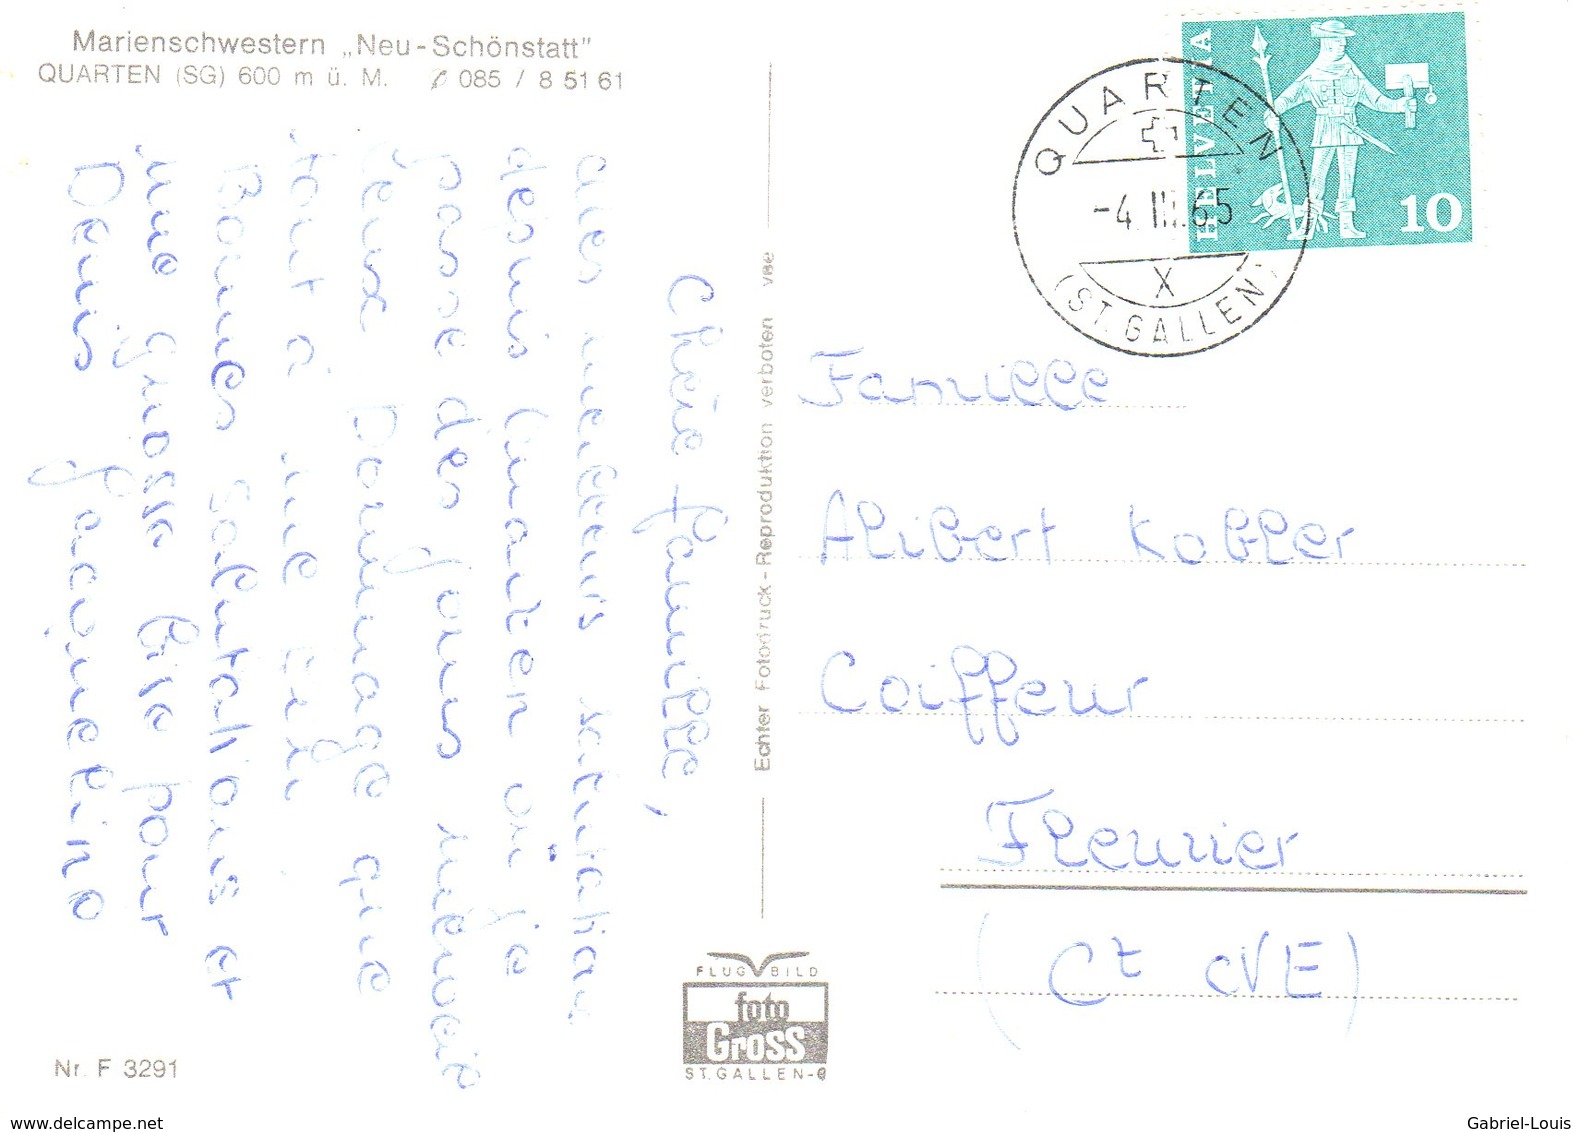 Marienschwestern „Neu-Schönstatt"
QUARTEN (SG) 600 m ü. M. ✆ 085 / 8 51 61
HELVETIA
10
QUARTEN
-4.III.65
X
(ST. GALLEN)
Chère famille,
mes meilleurs salutation
depuis Quarten où je
passe des jours
Dommage que
tout a une
Bonnes salutations et
une grosse bise pour
Denis Jacqueline
Echter Fotodruck - Reproduktion verboten vbe
Famille
Alibert Kobler
Coiffeur
Fleurier
(Ct NE)
FLUG BILD
foto
Gross
ST. GALLEN-
Nr. F 3291
www.delcampe.net
Gabriel-Louis